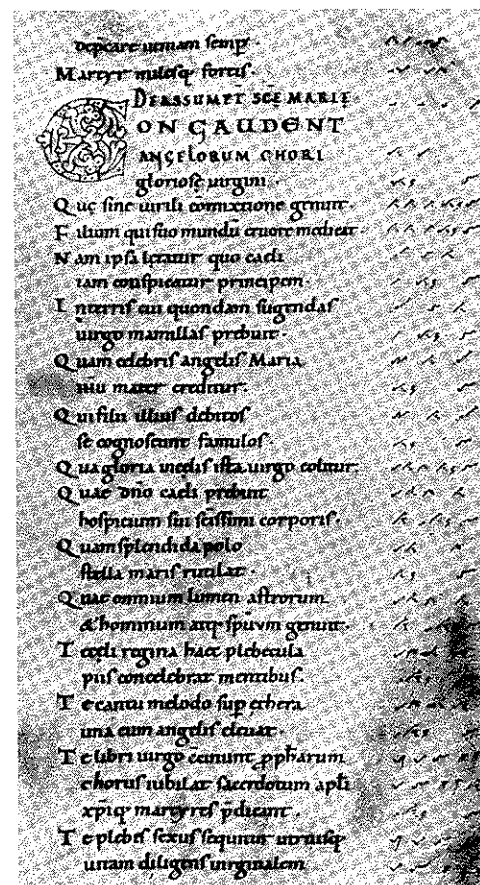 dep̄care ueniam semp̄ ·
Martyr milesq; fortis ·
DE ASSUMPT SC̄E MARIE
CONGAUDENT
ANGELORUM CHORI
gloriosę uirgini ·
Quę sine uirili conmixtione genuit ·
Filium qui suo mundū cruore medicat ·
Nam ipsa lętatur quo caeli
iam conspicatur principem ·
In terris cui quondam sugendas
uirgo mamillas prebuit ·
Quam celebris angelis Maria
ihu mater creditur ·
Qui filii illius debitos
se cognoscunt famulos ·
Qua gloria in cęlis ista uirgo colitur ·
Quae dn̄o caeli prebuit
hospicium sui sc̄issimi corporis ·
Quam splendida polo
stella maris rutilat ·
Quae omnium lumen astrorum
& hominum atq; sp̄uum genuit ·
Te cęli regina haec plebecula
piis concelebrat mentibus ·
Te cantu melodo sup̄ ethera
una cum angelis eleuat ·
Te libri uirgo c̄cinunt p̱ph̄arum
chorus iubilat sacerdotum apl̄i
xp̄iq; martyres p̄dicant ·
Te plebes sexus sequitur utriusq;
uitam diligens uirginalem